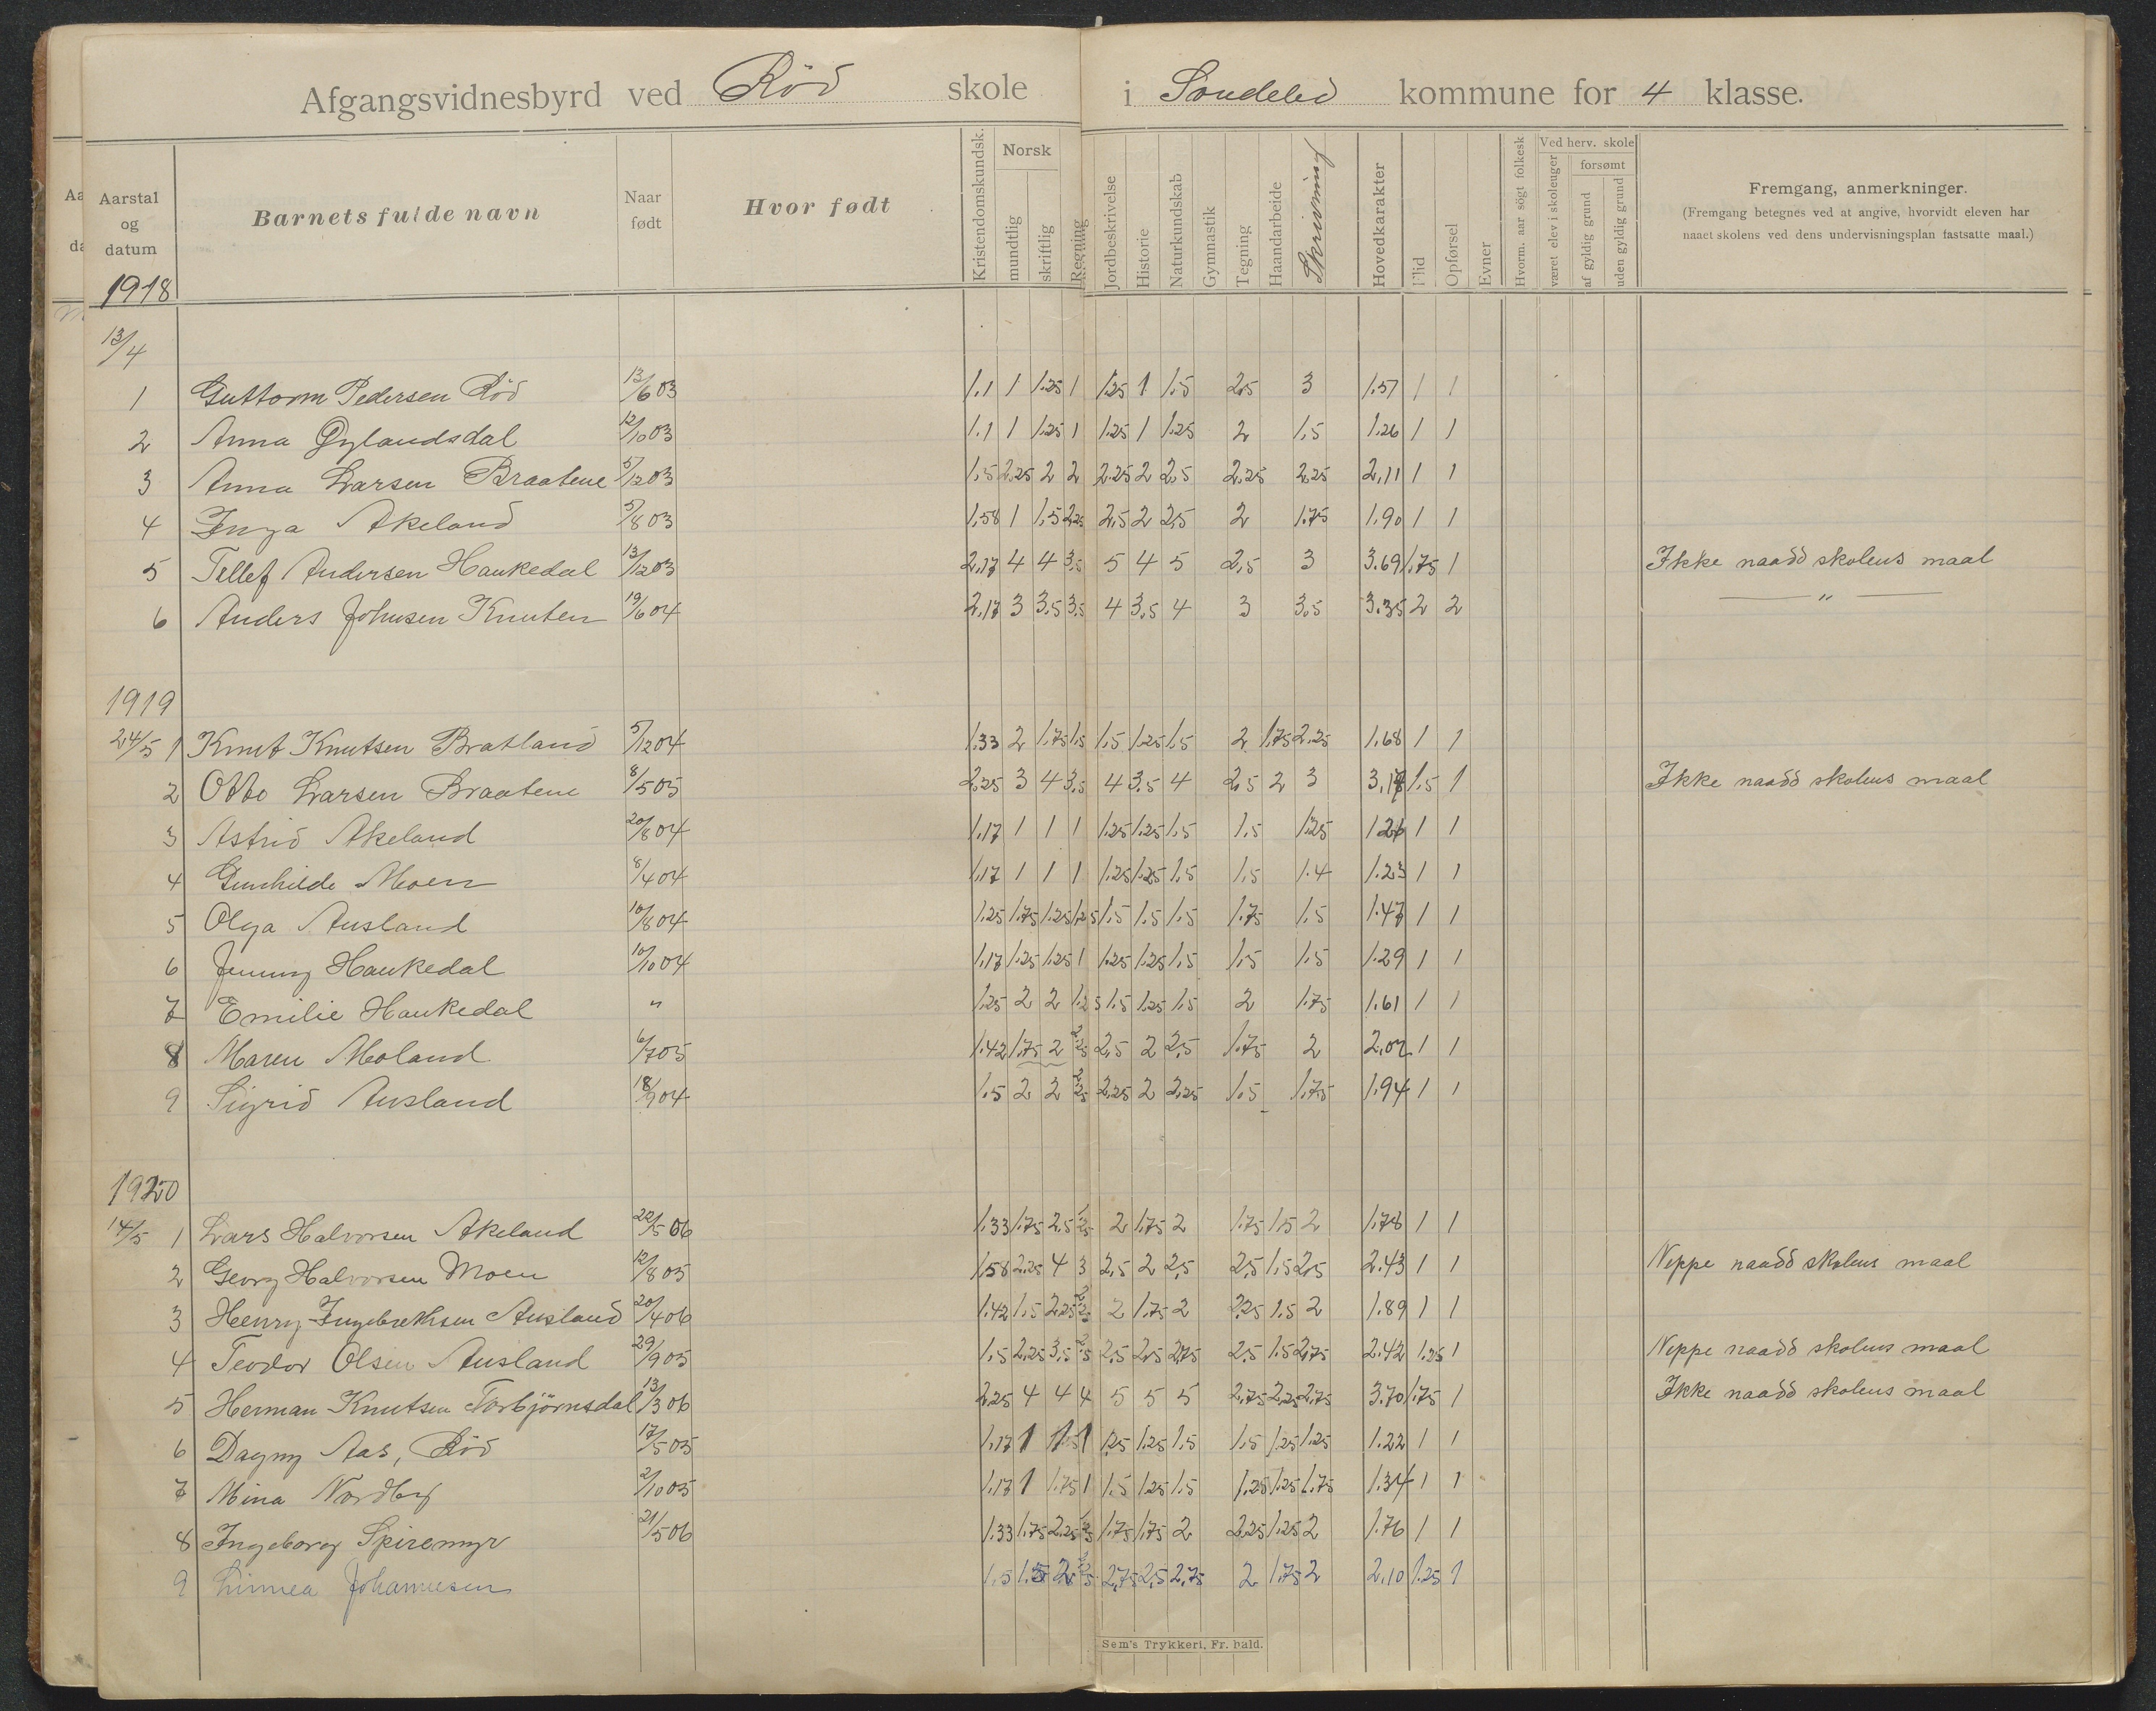 Afgangsvidnesbyrd ved Röd skole i Söndeled kommune for 4 klasse.
Aarstal og datum Barnets fulde navn Naar født Hvor født Kristendomskundsk. Norsk mundtlig skriftlig Regning Jordbeskrivelse Historie Naturkundskab Gymnastik Tegning Haandarbeide Skrivning Hovedkarakter Flid Opførsel Evner Hvorm. aar søgt folkesk Ved herv. skole været elev i skoleuger forsømt af gyldig grund uden gyldig grund Fremgang, anmerkninger.
(Fremgang betegnes ved at angive, hvorvidt eleven har
naaet skolens ved dens undervisningsplan fastsatte maal.)
1918
13/4
1 Guttorm Pedersen Röd 13/6 03 1.1 1 1.25 1 1.25 1 1.5 2.5 3 1.57 1 1
2 Anna Gylandsdal 12/10 03 1.1 1 1.25 1 1.25 1 1.25 2 1.5 1.26 1 1
3 Anna Larsen Braatene 5/12 03 1.5 2.25 2 2 2.25 2 2.5 2.25 2.25 2,11 1 1
4 Inga Akeland 5/8 03 1.58 1 1.5 2.25 2.5 2 2.5 2 1.75 1.90 1 1
5 Tellef Andersen Haukedal 13/12 03 2.17 4 4 3.5 5 4 5 2.5 3 3.69 1.75 1 Ikke naadd skolens maal
6 Anders Johnsen Knuten 19/6 04 2.17 3 3.5 3.5 4 3.5 4 3 3.5 3.35 2 2 — " —
1919
24/5 1 Knut Knutsen Bratland 5/12 04 1.33 2 1.75 1.5 1.5 1.25 1.5 2 1.75 2.25 1.68 1 1
2 Otto Larsen Braatene 8/5 05 2.25 3 4 3.5 4 3.5 4 2.5 2 3 3,17 1.5 1 Ikke naadd skolens maal
3 Astrid Akeland 20/8 04 1.17 1 1 1 1.25 1.25 1.5 1.5 1.25 1.21 1 1
4 Gunhilde Moen 8/4 04 1.17 1 1 1 1.25 1.25 1.5 1.5 1.4 1.23 1 1
5 Olga Ausland 10/8 04 1.25 1.75 1.25 1.25 1.5 1.5 1.5 1.75 1.5 1.47 1 1
6 Jenny Haukedal 10/10 04 1.17 1.25 1.25 1 1.25 1.25 1.5 1.5 1.5 1.29 1 1
7 Emilie Haukedal " 1.25 2 2 1.25 1.5 1.25 1.5 2 1.75 1.61 1 1
8 Maren Moland 6/7 05 1.42 1.75 2 2.25 2.5 2 2.5 1.75 2 2.02 1 1
9 Sigrid Ausland 18/9 04 1.5 2 2 2.25 2.25 2 2.25 1.5 1.75 1.94 1 1
1920
14/5 1 Lars Halvorsen Akeland 22/5 06 1.33 1.75 2.5 1.25 2 1.75 2 1.75 1.5 2 1.78 1 1
2 Georg Halvorsen Moen 12/8 05 1.58 2.25 4 3 2.5 2 2.5 2.5 1.5 2.5 2.43 1 1 Neppe naadd skolens maal
3 Henry Ingebrethsen Ausland 20/4 06 1.42 1.5 2.25 2.25 2 1.75 2 2.25 1.5 2 1.89 1 1
4 Teodor Olsen Ausland 29/9 05 1.5 2.25 3.5 2.5 2.5 2.5 2.75 2.5 1.5 2.75 2.42 1.25 1 Neppe naadd skolens maal
5 Herman Knutsen Torbjörnsdal 13/3 06 2.25 4 4 4 5 5 5 2.75 2.25 2.75 3.70 1.75 1 Ikke naadd skolens maal
6 Dagny Aas, Röd 17/5 05 1.17 1 1.5 1 1.25 1.25 1.5 1.5 1.25 1.25 1.22 1 1
7 Mina Nordby 2/10 05 1.17 1 1.75 1 1.5 1.25 1.5 1.25 1.25 1.75 1.34 1 1
8 Ingeborg Spiremyr 21/5 06 1.33 1.75 2.25 1.75 1.75 2 2.25 1.25 2 1.76 1 1
9 Linnea Johannesen 1.5 1.5 2.75 2.5 2.75 2 1.75 2 2.10 1.25 1
Sem's Trykkeri, Fr. hald.